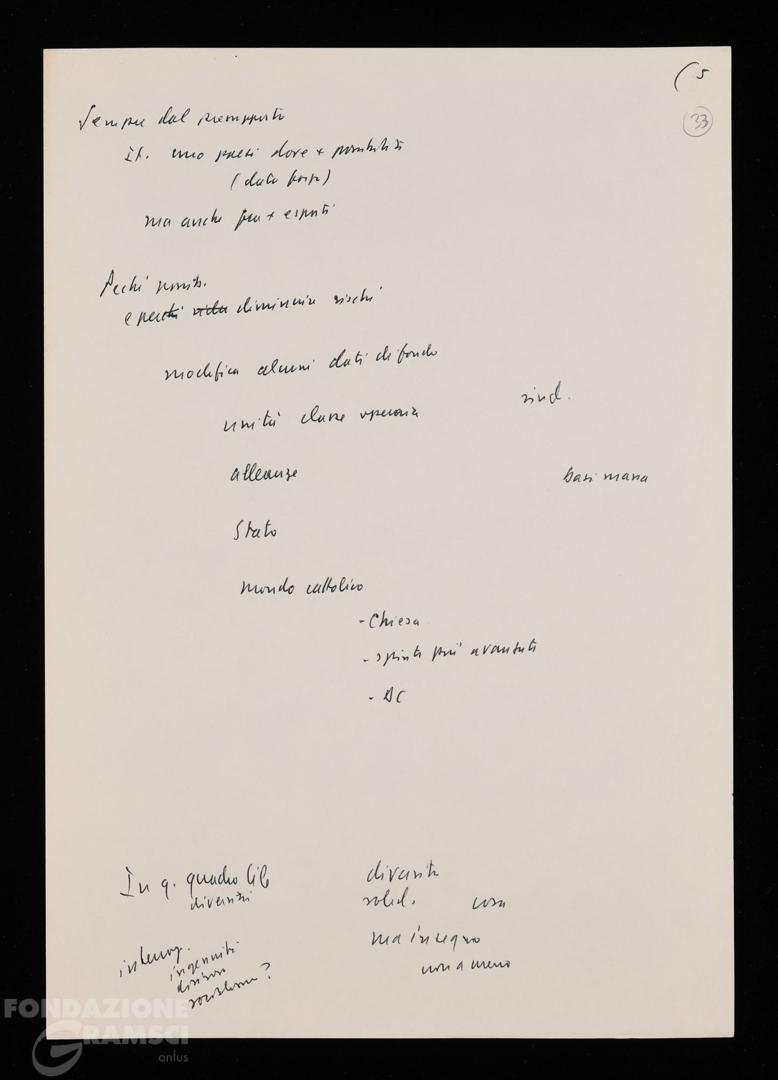 (5
33
Sempre dal presupposto
It. uno paesi dove + possibilità
(data forza)
ma anche fra + esposti
Perché possib.
e perché diminuire rischi
modifica alcuni dati di fondo
unità classe operaia sind.
alleanze basi massa
Stato
mondo cattolico
- Chiesa
- spinte più avanzate
- DC
In q. quadro
diversità
solid. cosa
ma insegno
non a meno
interrog.
ingenuità
socialismo?
FONDAZIONE
GRAMSCI
onlus